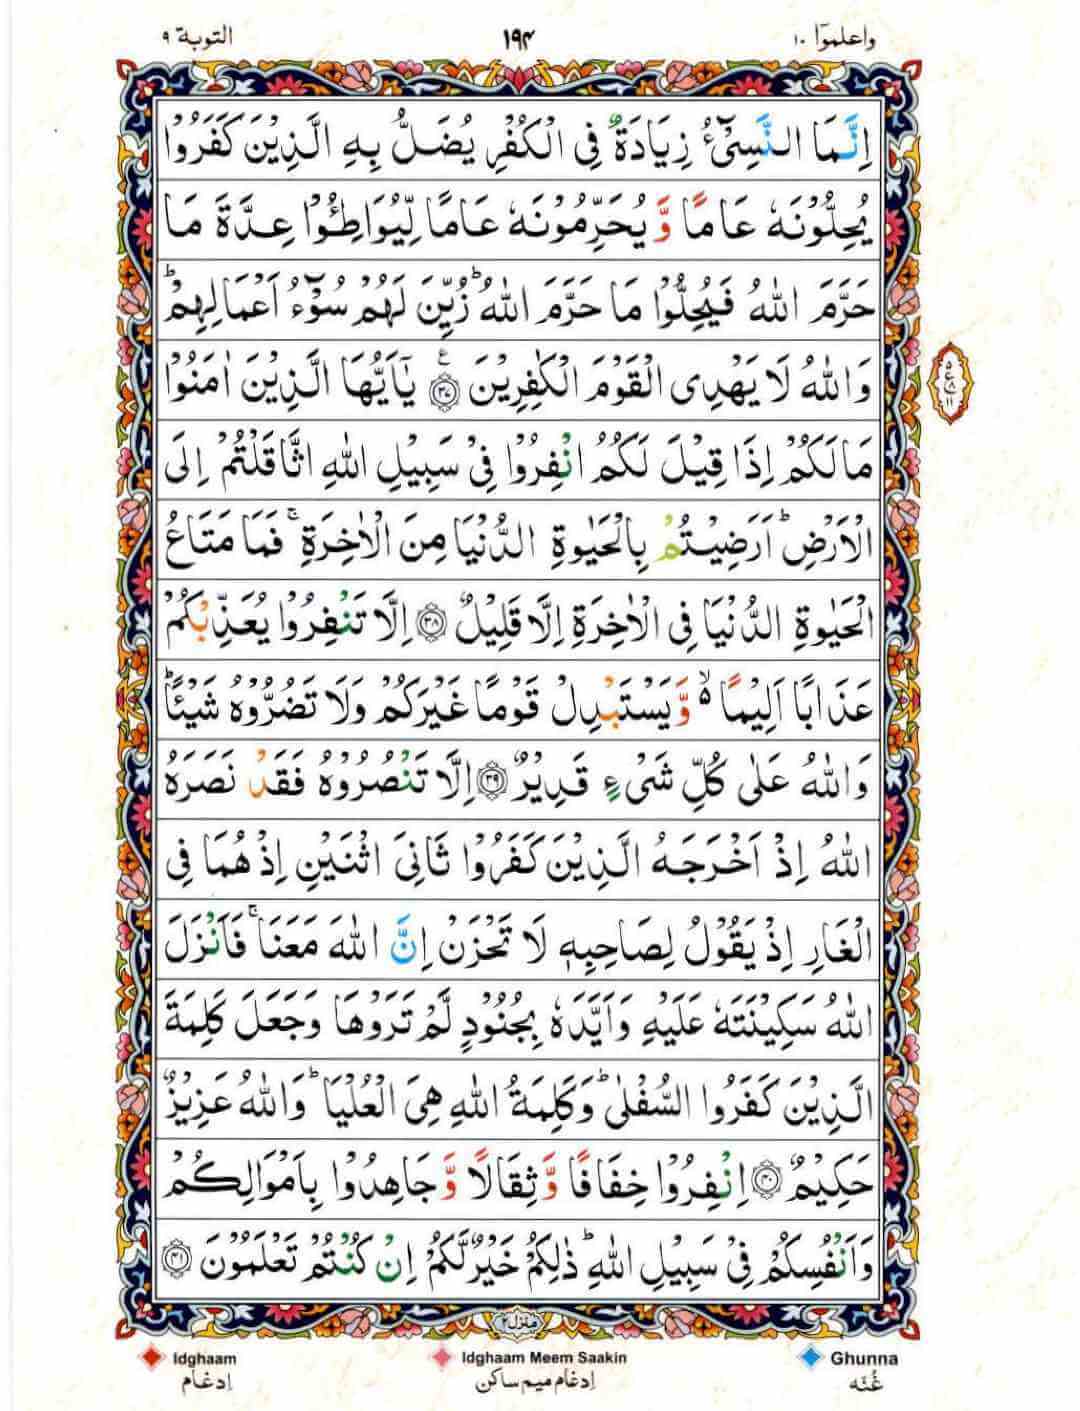 واعلموٓا ١٠ ١٩٤ التوبة ٩
اِنَّمَا النَّسِیْٓءُ زِیَادَةٌ فِی الْكُفْرِ یُضَلُّ بِهِ الَّذِیْنَ كَفَرُوْا
یُحِلُّوْنَهٗ عَامًا وَّ یُحَرِّمُوْنَهٗ عَامًا لِّیُوَاطِـُٔوْا عِدَّةَ مَا
حَرَّمَ اللّٰهُ فَیُحِلُّوْا مَا حَرَّمَ اللّٰهُ ؕ زُیِّنَ لَهُمْ سُوْٓءُ اَعْمَالِهِمْ ؕ
وَاللّٰهُ لَا یَهْدِی الْقَوْمَ الْكٰفِرِیْنَ ﴿٣٧﴾ ع یٰۤاَیُّهَا الَّذِیْنَ اٰمَنُوْا
مَا لَكُمْ اِذَا قِیْلَ لَكُمُ انْفِرُوْا فِیْ سَبِیْلِ اللّٰهِ اثَّاقَلْتُمْ اِلَی
الْاَرْضِ ؕ اَرَضِیْتُمْ بِالْحَیٰوةِ الدُّنْیَا مِنَ الْاٰخِرَةِ ۚ فَمَا مَتَاعُ
الْحَیٰوةِ الدُّنْیَا فِی الْاٰخِرَةِ اِلَّا قَلِیْلٌ ﴿٣٨﴾ اِلَّا تَنْفِرُوْا یُعَذِّبْكُمْ
عَذَابًا اَلِیْمًا ۙ۵ وَّیَسْتَبْدِلْ قَوْمًا غَیْرَكُمْ وَلَا تَضُرُّوْهُ شَیْـًٔا ؕ
وَاللّٰهُ عَلٰی كُلِّ شَیْءٍ قَدِیْرٌ ﴿٣٩﴾ اِلَّا تَنْصُرُوْهُ فَقَدْ نَصَرَهُ
اللّٰهُ اِذْ اَخْرَجَهُ الَّذِیْنَ كَفَرُوْا ثَانِیَ اثْنَیْنِ اِذْ هُمَا فِی
الْغَارِ اِذْ یَقُوْلُ لِصَاحِبِهٖ لَا تَحْزَنْ اِنَّ اللّٰهَ مَعَنَا ۚ فَاَنْزَلَ
اللّٰهُ سَكِیْنَتَهٗ عَلَیْهِ وَاَیَّدَهٗ بِجُنُوْدٍ لَّمْ تَرَوْهَا وَجَعَلَ كَلِمَةَ
الَّذِیْنَ كَفَرُوا السُّفْلٰی ؕ وَكَلِمَةُ اللّٰهِ هِیَ الْعُلْیَا ؕ وَاللّٰهُ عَزِیْزٌ
حَكِیْمٌ ﴿٤٠﴾ اِنْفِرُوْا خِفَافًا وَّثِقَالًا وَّ جَاهِدُوْا بِاَمْوَالِكُمْ
وَاَنْفُسِكُمْ فِیْ سَبِیْلِ اللّٰهِ ؕ ذٰلِكُمْ خَیْرٌ لَّكُمْ اِنْ كُنْتُمْ تَعْلَمُوْنَ ﴿٤١﴾
٥
ع
٨
١١
منزل ٢
Idghaam Idghaam Meem Saakin Ghunna
ادغام ادغام میم ساکن غُنّه